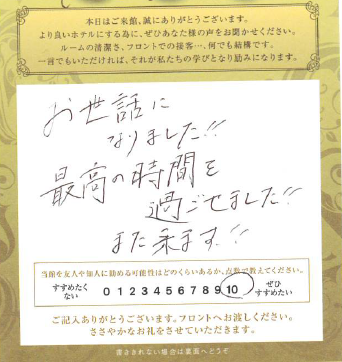 本日はご来館、誠にありがとうございます。
より良いホテルにする為に、ぜひあなた様の声をお聞かせください。
ルームの清潔さ、フロントでの接客…、何でも結構です。
一言でもいただければ、それが私たちの学びとなり励みになります。
お世話に
なりました!!
最高の時間を
過ごせました!!
また来ます!!
当館を友人や知人に勧める可能性はどのくらいあるか、点数で教えてください。
すすめたくない 0 1 2 3 4 5 6 7 8 9 10 ぜひすすめたい
ご記入ありがとうございます。フロントへお渡しください。
ささやかなお礼をさせていただきます。
書ききれない場合は裏面へどうぞ